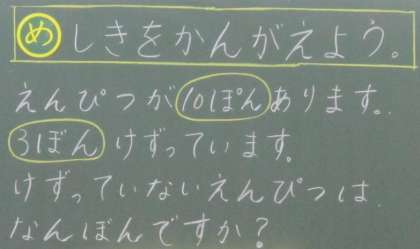 め しきをかんがえよう。
えんぴつが10ぽんあります。
3ぼんけずっています。
けずっていないえんぴつは
なんぼんですか？